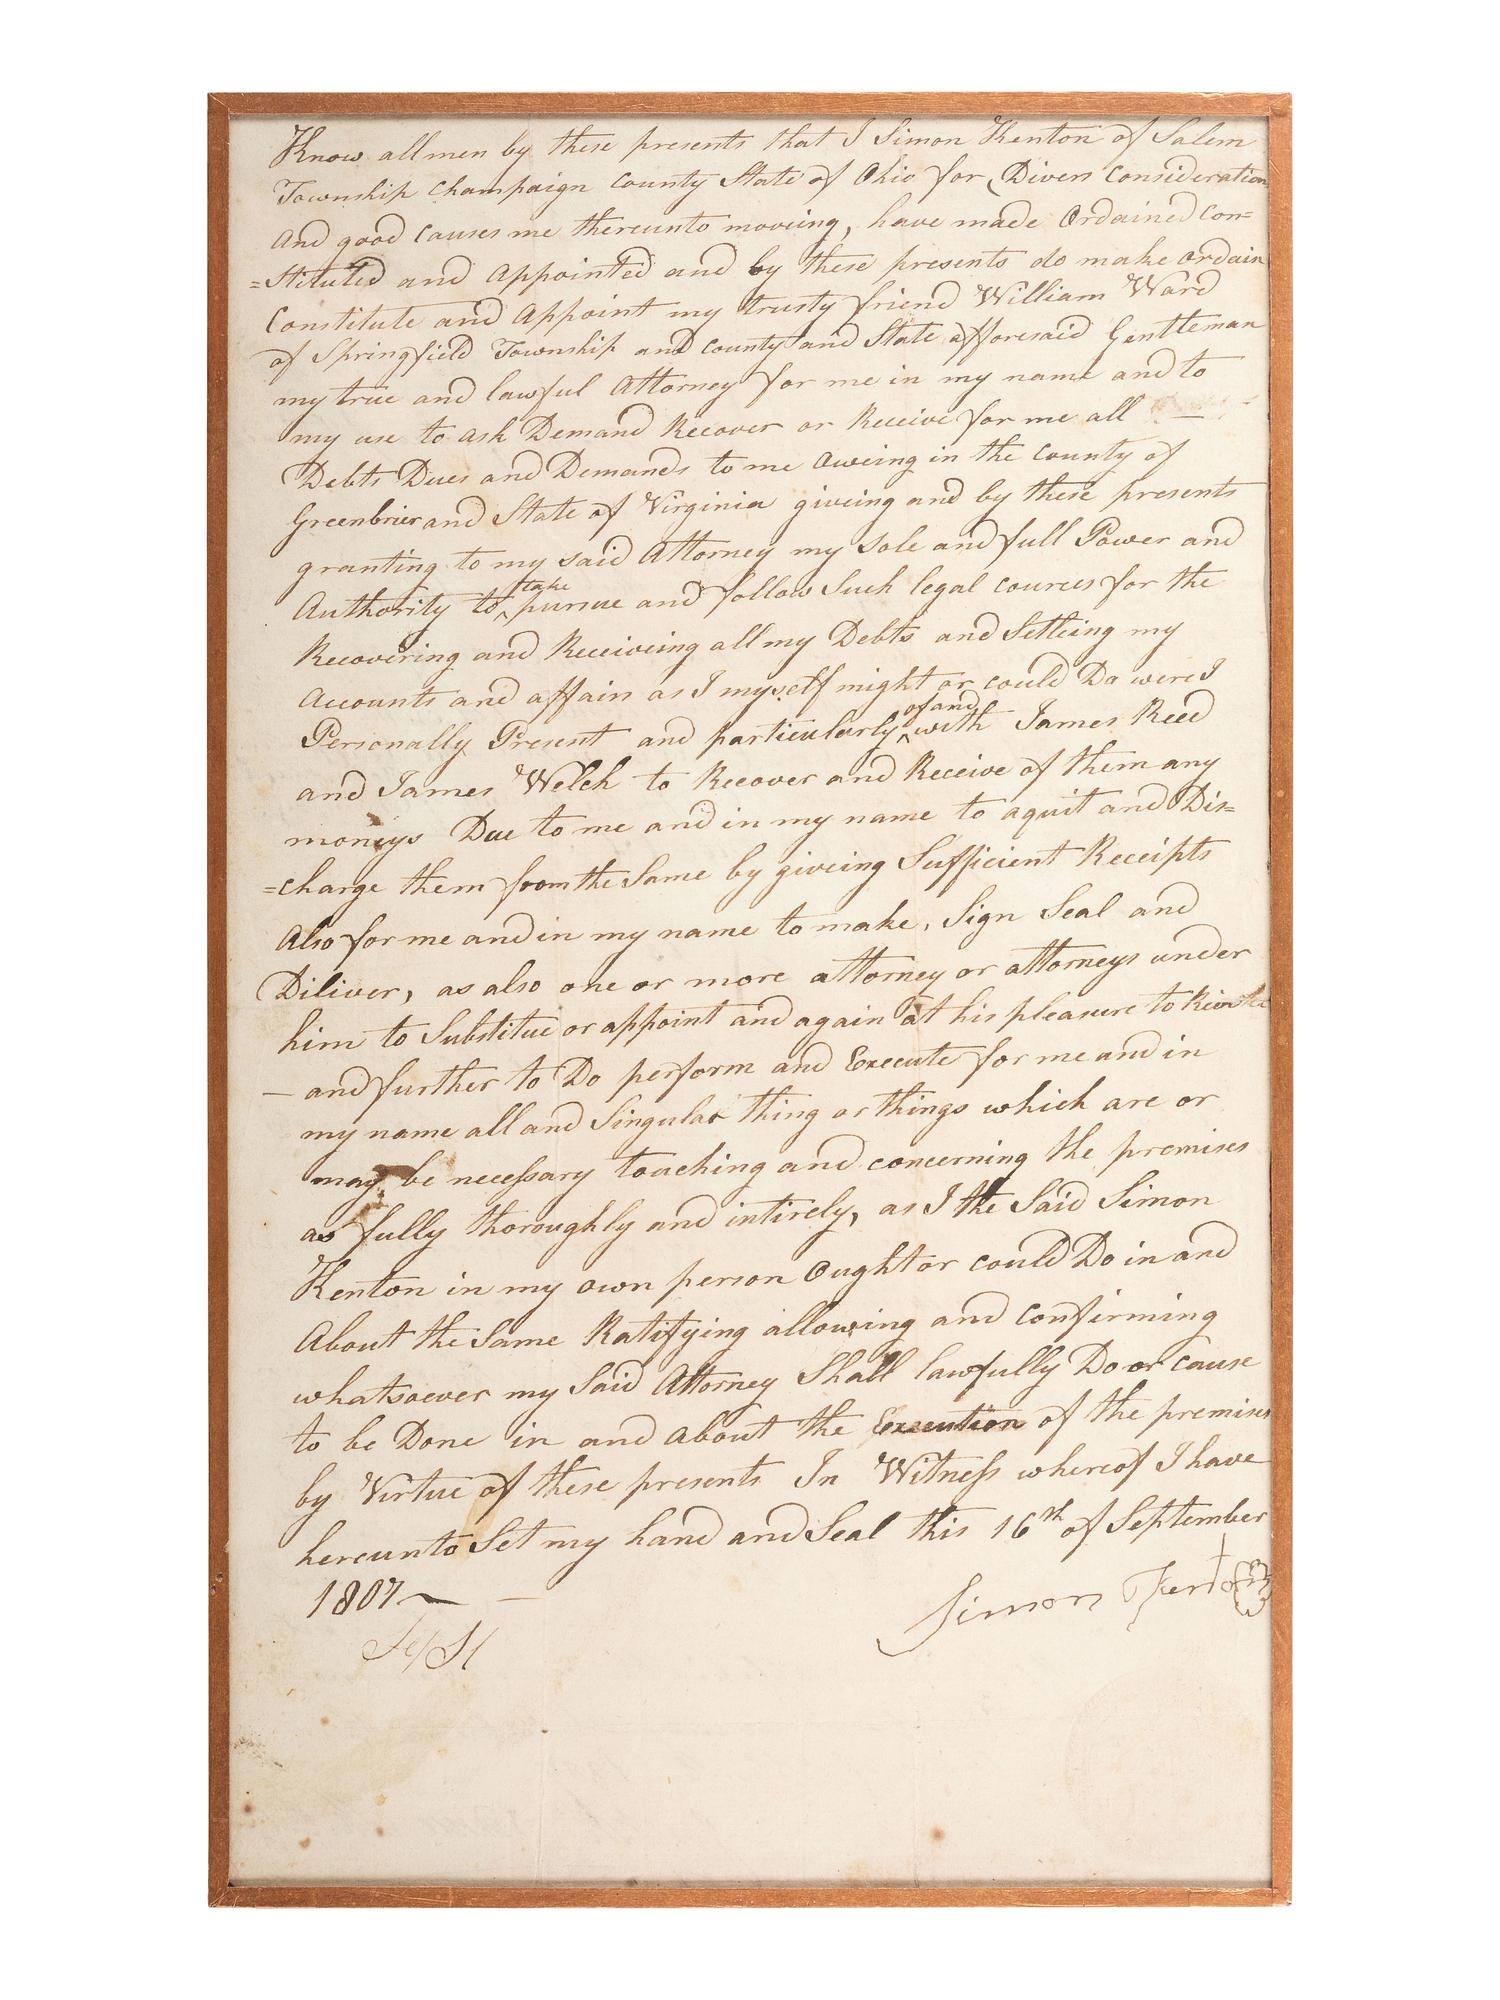 Know all men by these presents that I Simon Kenton of Salem
Township Champaign County State of Ohio for Divers Consideration
And good Causes me thereunto moveing, have made Ordained Con=
=stituted and Appointed and by these presents do make ordain
Constitute and Appoint my trusty friend William Ward
of Springfield Township and County and State afforesaid Gentleman
my true and lawful Attorney for me in my name and to
my use to ask Demand Recover or Receive for me all —
Debts Dues and Demands to me Oweing in the County of
Greenbrier and State of Virginia giveing and by these presents
granting to my said Attorney my Sole and full Power and
Authority to ^take pursue and follow Such legal cources for the
Recovering and Receiveing all my Debts and Setleing my
Accounts and affairs as I myself might or could Do were I
Personally Present and particularly ^of and with James Reed
and James Welch to Recover and Receive of them any
moneys Due to me and in my name to aquit and Dis=
=charge them from the Same by giveing Sufficient Receipts
Also for me and in my name to make, Sign Seal and
Diliver, as also one or more attorney or attorneys under
him to Substitue or appoint and again at his pleasure to
— and further to Do perform and Execute for me and in
my name all and Singular thing or things which are or
may be necessary touching and concerning the premises
as fully thoroughly and intirely, as I the Said Simon
Kenton in my own person Ought or could Do in and
About the Same Ratifying allowing and Confirming
whatsoever my Said Attorney Shall lawfully Do or cause
to be Done in and About the Execution of the premises
by Virtue of these presents In Witness whereof I have
hereunto Set my hand and Seal this 16th of September
1807 —
Simon Kenton